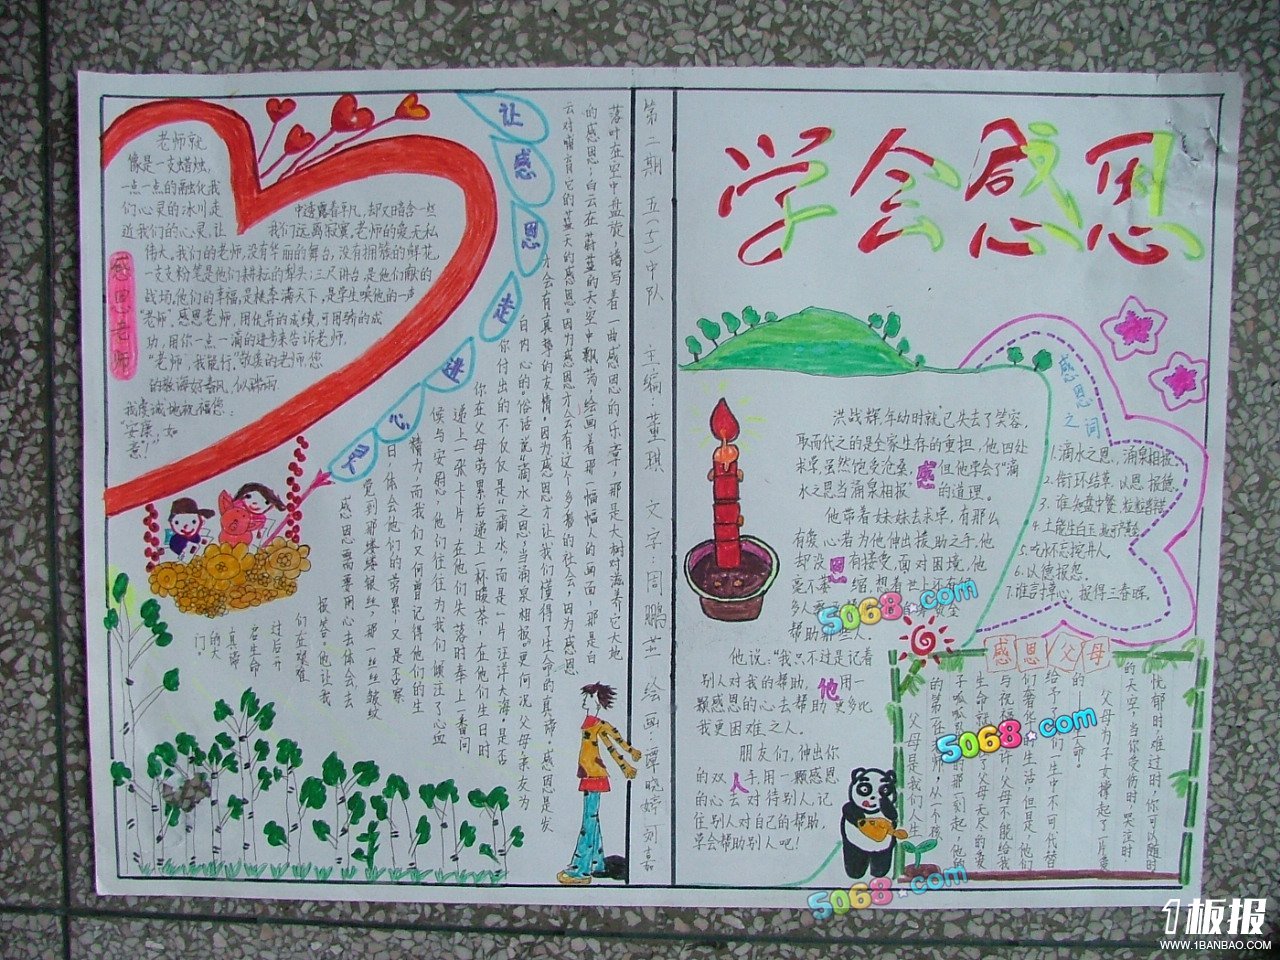 学会感恩
第二期 五(5)中队 主编:董琪 文字:周鹏芸 绘画:谭晓婷
感恩老师
老师就
像是一支蜡烛,
一点一点的融化我
们心灵的冰川走
近我们的心灵,让
我们远离寂寞,老师的爱无私
中透露着平凡,却又暗含一些
伟大,我们的老师,没有华丽的舞台,没有拥簇的鲜花,
一支支粉笔是他们耕耘的犁头;三尺讲台,是他们献的
战场,他们的幸福,是桃李满天下,是学生唤他的一声
"老师",感恩老师,用优异的成绩,可用骄的成
功,用你一点一滴的进步来告诉老师,
"老师,我能行",敬爱的老师,您
的教诲好春风,似瑞雨
我虔诚地祝福您:
"安康,如
意!"
让感恩走进心
落叶在空中盘旋,谱写着一曲感恩的乐章,那是大树对滋养它大地
的感恩;白云在蔚蓝的天空中飘荡,绘画着那一幅幅人的画面,那是白
云对哺育它的蓝天的感恩。因为感恩才会有这个多彩的社会,因为感恩
才会有真挚的友情。因为感恩才让我们懂得了生命的真谛。感恩是发
自内心的。俗话说"滴水之恩,当涌泉相报。"更何况父母亲友为
你付出的不仅仅是"一滴水",而是一片汪洋大海。是否
你在父母劳累后递上一杯暖茶,在他们生日时
递上一张卡片,在他们失落时奉上一番问
候与安慰,他们往往为我们倾注了心血
精力,而我们又何曾记得他们的生
日,体会他们的劳累,又是否察
觉到那缕缕银丝,那一丝丝皱纹
感恩需要用心去体会,去
报答。
洪战辉,年幼时就已失去了笑容,
取而代之的是全家生存的重担,他四处
求学,虽然饱受沧桑,但他学会了"滴
水之恩当涌泉相报"感的道理。
他带着妹妹去求学,有那么
有爱心者为他伸出援助之手,他
却没恩有接受,面对困境,他
帮助那些人。
他说:"我只不过是记着
别人对我的帮助,他用一
颗感恩的心去帮助更多比
我更困难之人。
朋友们,伸出你
的双人手,用一颗感恩
的心去对待别人,记
住别人对自己的帮助,
学会帮助别人吧!
感恩之词
1.滴水之恩,涌泉相报。
2.衔环结草,以恩报德。
3.谁知盘中餐,粒粒皆辛苦
4.土能生白玉,地可产黄金
5.吃水不忘挖井人。
6.以德报怨。
7.谁言寸草心,报得三春晖。
感恩父母
父母是我们人生
的第一任老师,从一个孩
子呱呱坠地的那一刻起,他的
生命就倾注了父母无尽的爱
与祝福。或许,父母不能给我
们奢华的生活,但是,他们
给予了我们一生中不可代替
的——生命。
父母为子女撑起了一片爱
的天空,当你受伤时,哭泣时
忧郁时,难过时,你可以随时
5068.com
5068.com
5068.com
1板报
WWW.1BANBAO.COM